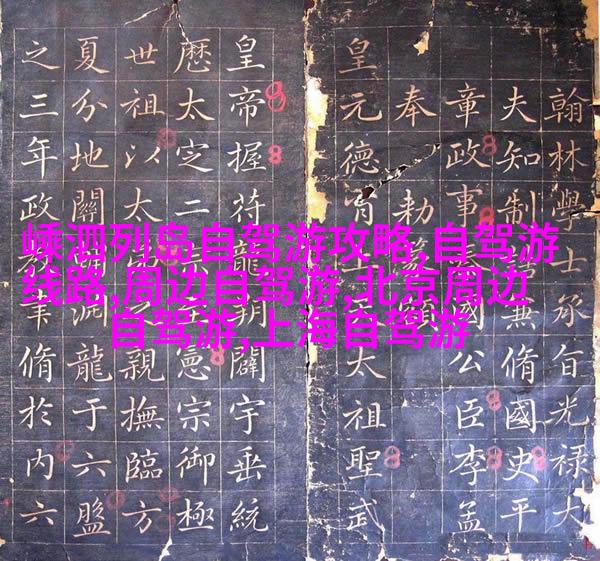 翰林學士承旨光祿大
夫知制兼脩國史平
章政事國公臣李孟
奉勅篆
皇元德太祖聖武
皇帝握符龍闢宇垂統
厯太定二憲宗御極
世祖以太親撫臨方
夏分地關龍于六盤
之三年政脩於內六
嵊泗列岛自驾游攻略,自驾游
线路,周边自驾游,北京周边
自驾游,上海自驾游